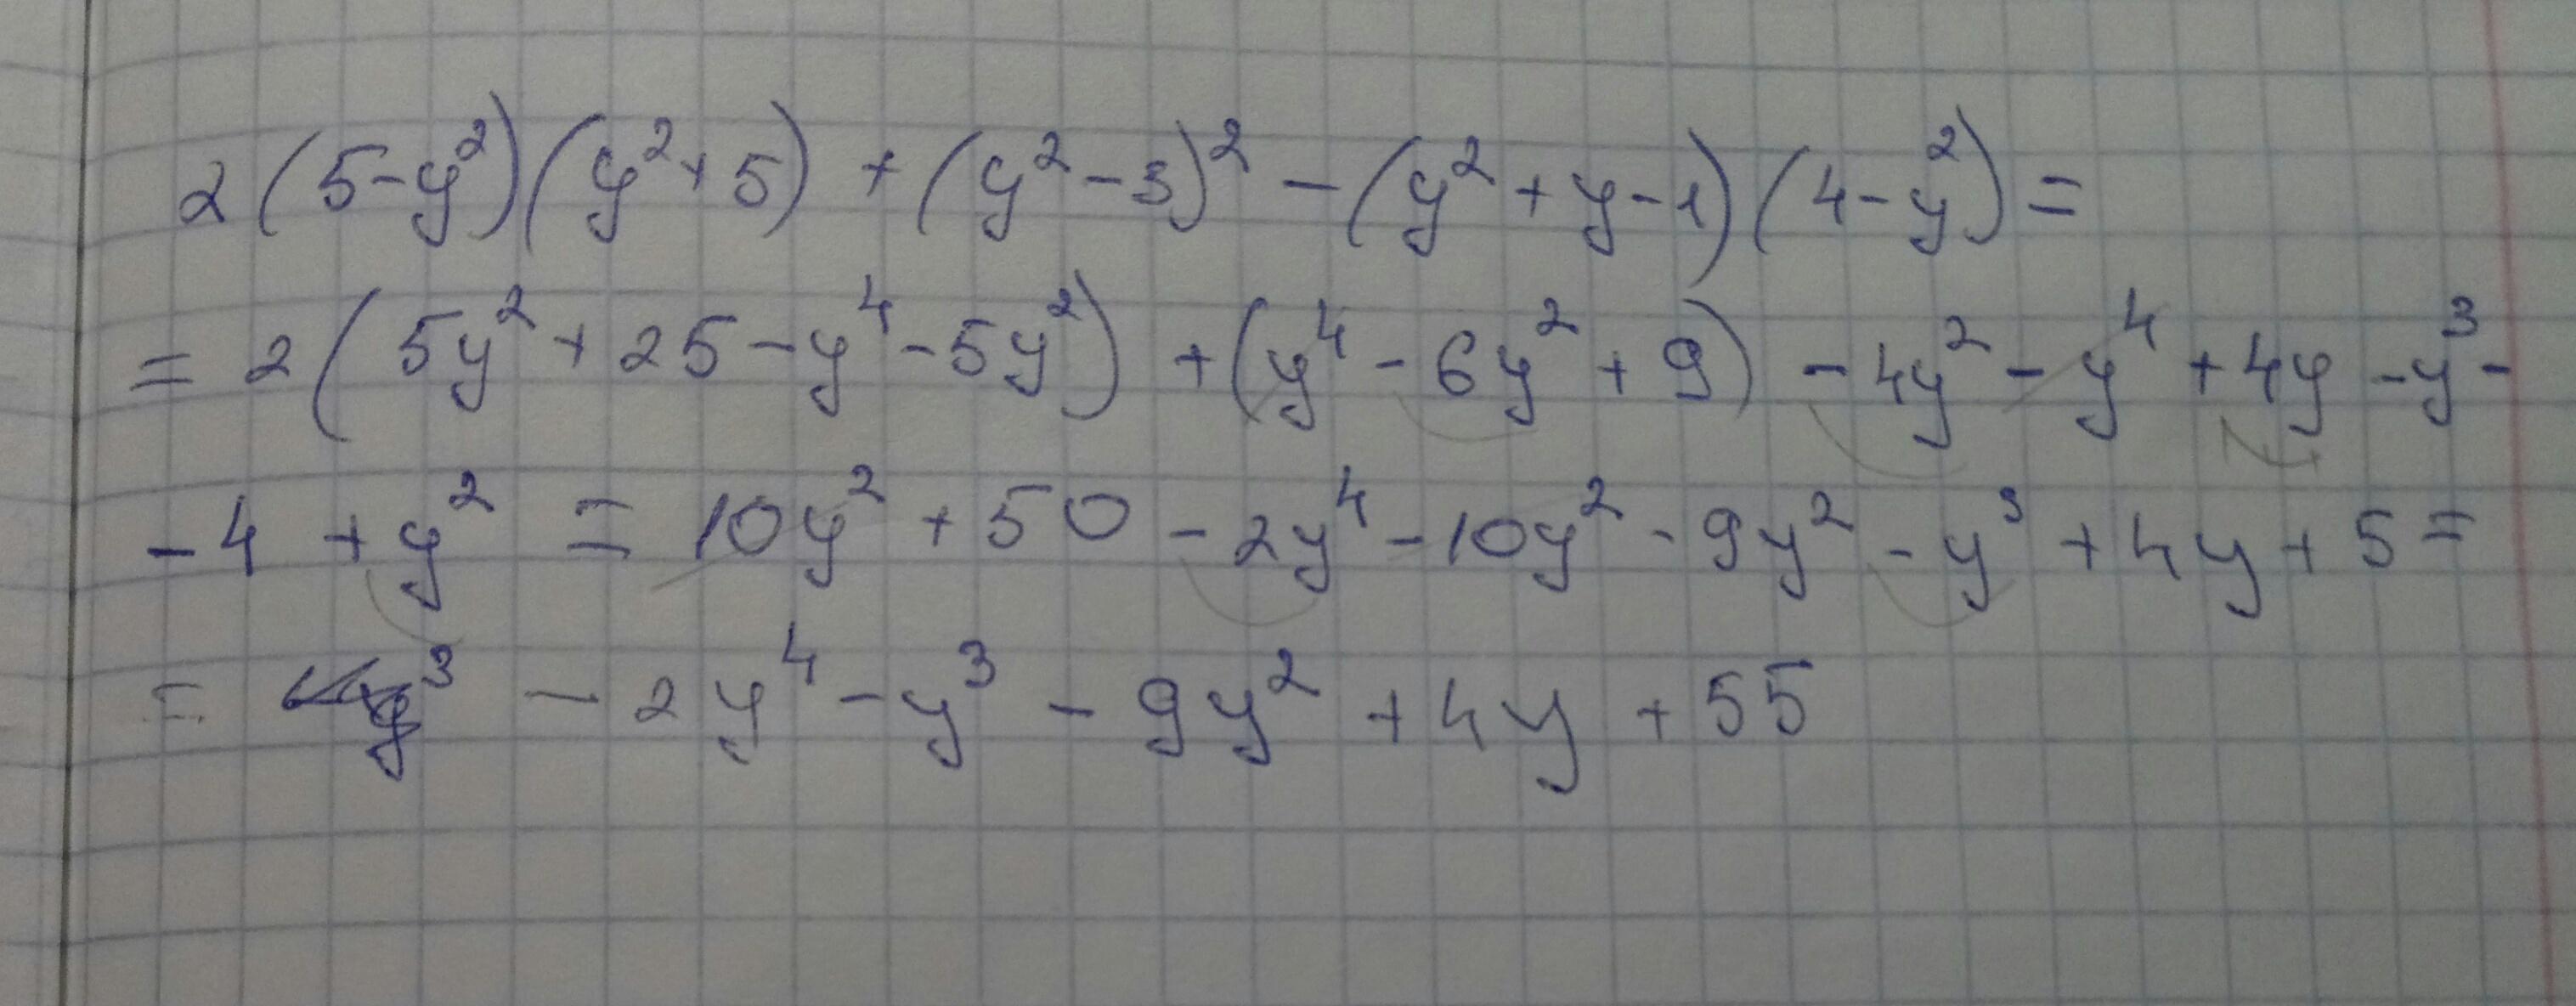 2(5-y²)(y²+5) + (y²-3)² - (y²+y-1)(4-y²) =
= 2(5y²+25-y⁴-5y²) + (y⁴-6y²+9) - 4y² - y⁴ + 4y - y³ -
- 4 + y² = 10y² + 50 - 2y⁴ - 10y² - 9y² - y³ + 4y + 5 =
= - 2y⁴ - y³ - 9y² + 4y + 55